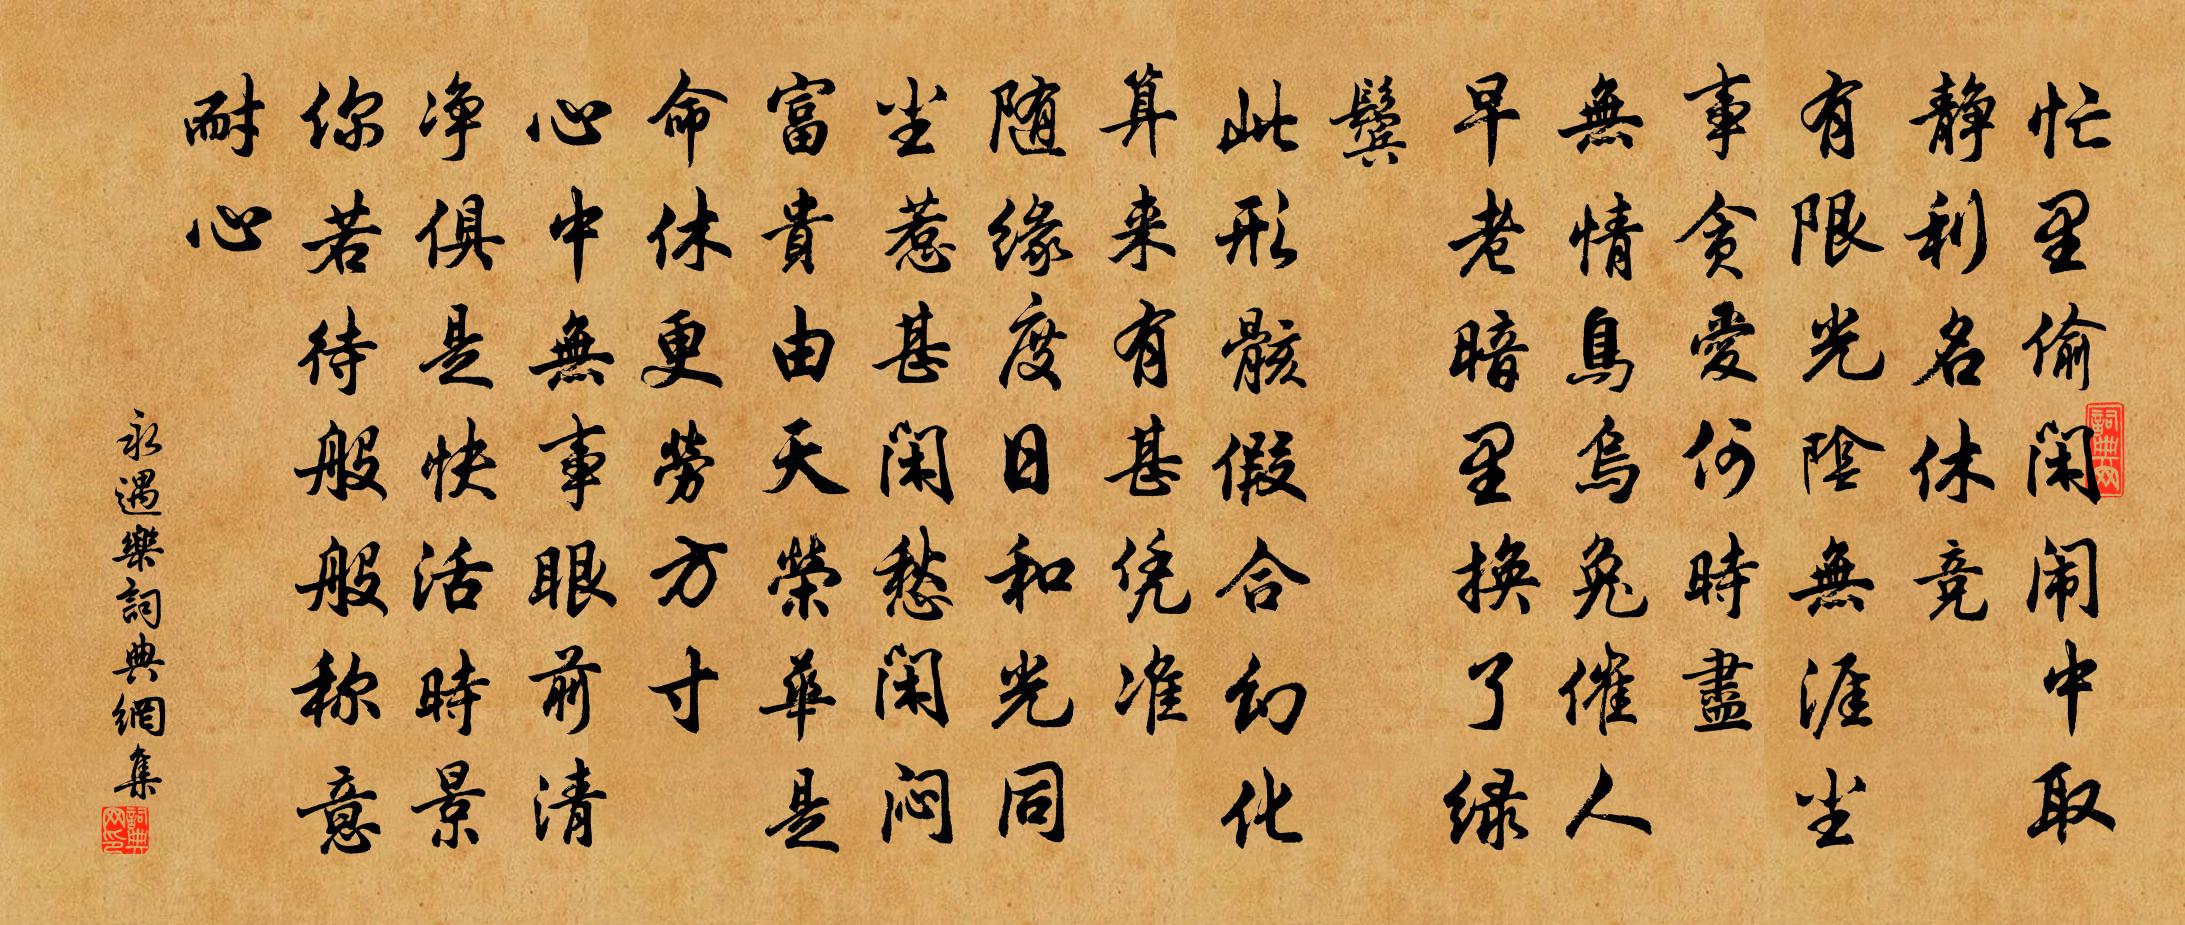 忙里偷闲闹中取
静利名休竞
有限光陰無涯尘
事贪愛何時盡
無情鳥烏兔催人
早老暗里换了绿
鬓
此形骸假合幻化
算来有甚凭准
随缘度日和光同
尘惹甚闲愁闲闷
富貴由天榮華是
命休更勞方寸
心中無事眼前清
净俱是快活時景
你若待般般称意
耐心
永遇樂詞典網集
詞典网
詞典网印